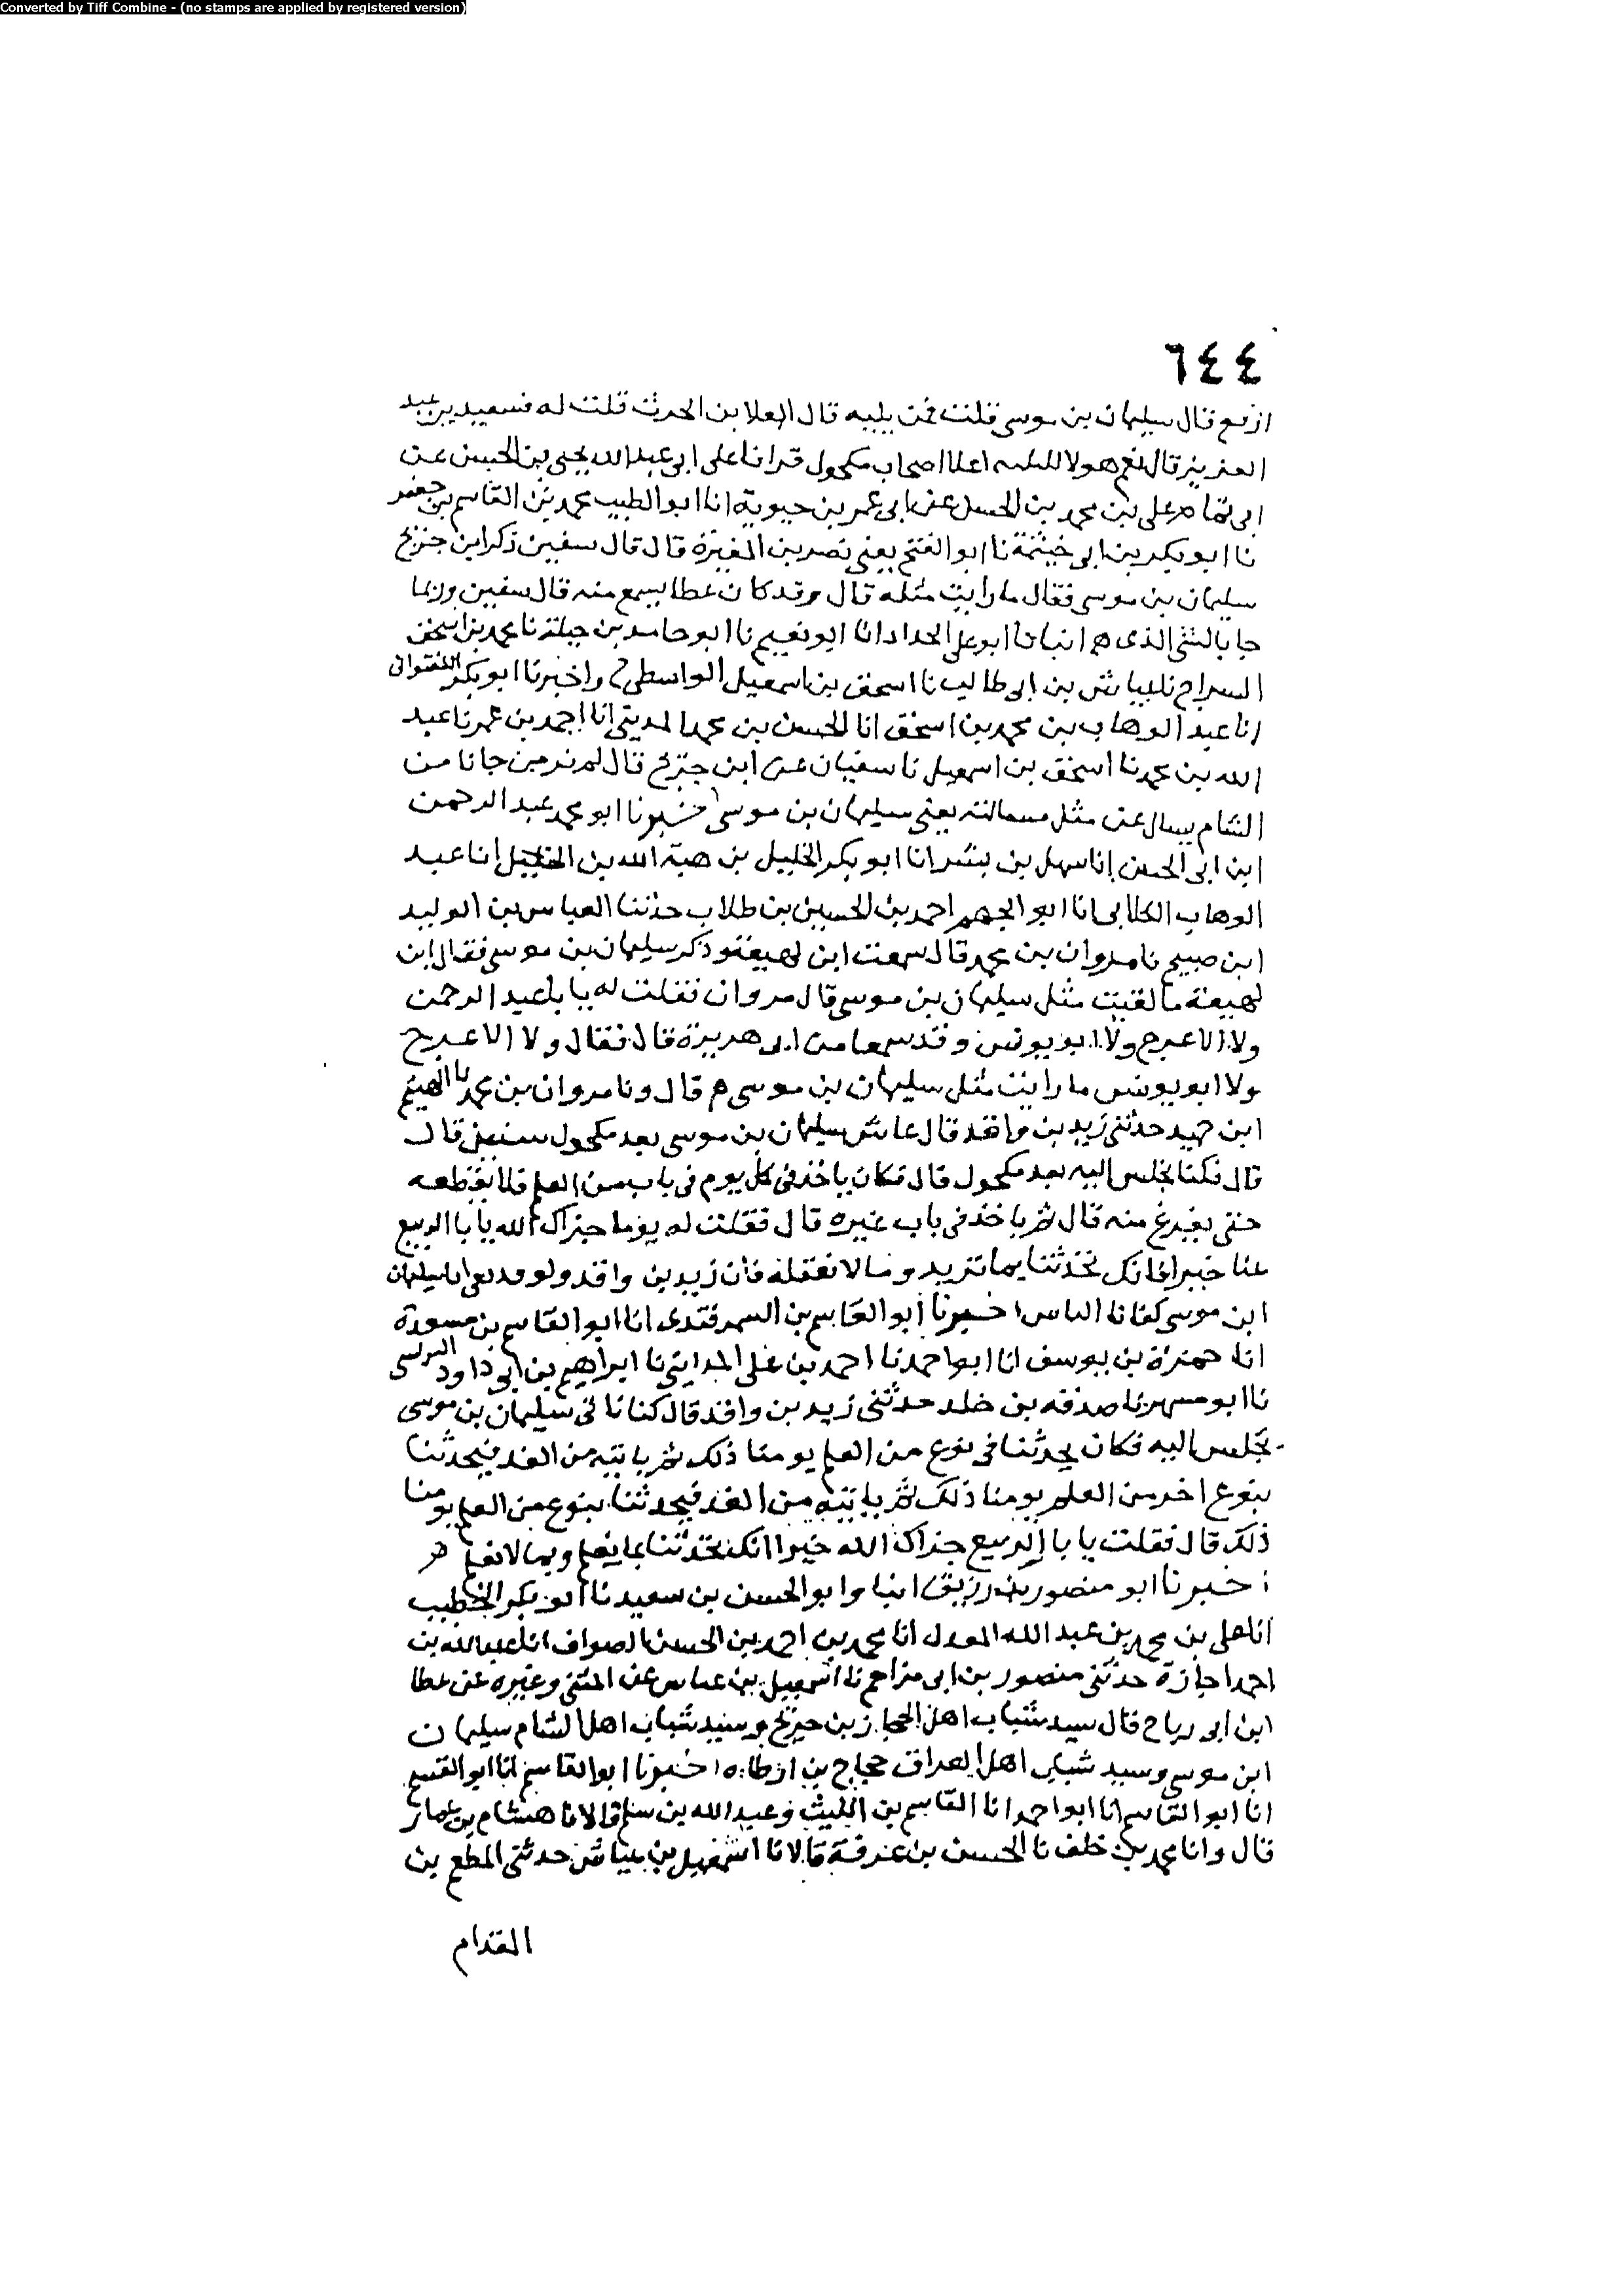 Converted by Tiff Combine - (no stamps are applied by registered version)
٦٤٤
ارفع قال سليمان بن موسى قلت فمن يليه قال العلا بن الحرث قلت له فسعيد بن عبد
العزيز قال نعم هولا اعلا اصحاب مكحول قرانا على ابى عبد الله يحيى بن الحسن عن
ابى تمام على بن محمد بن الحسن عن ابى عمر بن حيوية انا ابو الطيب محمد بن القاسم بن جعفر
نا ابو بكر بن ابى خيثمة نا ابو الفتح يعنى نصر بن المغيرة قال قال سفين ذكر ابن جريج
سليمان بن موسى فقال ما رايت مثله قال وقد كان عطا يسمع منه قال سفين وربما
جا بالشى الذى انبانا ابو على الحداد انا ابو نعيم نا ابو حامد بن جبلة نا محمد بن اسحق
السراج نا عباس بن ابى طالب نا اسحق بن اسمعيل الواسطى ح واخبرنا ابو بكر اللفتوانى
انا عبد الوهاب بن محمد بن اسحق انا الحسن بن محمد المدينى انا احمد بن عمر نا عبد
الله بن محمد نا اسحق بن اسمعيل نا سفيان عن ابن جريج قال لم نر من جانا من
الشام يسال عن مثل مسالته يعنى سليمان بن موسى اخبرنا ابو محمد عبد الرحمن
ابن ابى الحسن انا سهل بن بشر انا ابو بكر الخليل بن هبة الله بن الخليل انا عبد
الوهاب الكلابى انا ابو الجهم احمد بن الحسين بن طلاب حدثنا العباس بن الوليد
ابن صبيح نا مروان بن محمد قال سمعت ابن لهيعة وذكر سليمان بن موسى فقال ابن
لهيعة ما لقيت مثل سليمان بن موسى قال مروان فقلت له يا با عبد الرحمن
ولا الاعرج ولا ابو يونس وقد سمعا من ابى هريرة قال فقال ولا الاعرج
ولا ابو يونس ما رايت مثل سليمان بن موسى م قال ونا مروان بن محمد نا الهيثم
ابن حميد حدثنى زيد بن واقد قال عاش سليمان بن موسى بعد مكحول سنتين قال
قال فكنا نجلس اليه بعد مكحول قال فكان ياخذ فى كل يوم فى باب من العلم فلا يقطعه
حتى يفرغ منه قال ثم ياخذ فى باب غيره قال فقلت له يوما جزاك الله يا با الربيع
عنا خيرا فانك تحدثنا بما نريد وما لا نعقله قال زيد بن واقد ولو بقى لنا سليمان
ابن موسى كفانا الناس اخبرنا ابو القاسم بن السمرقندى انا ابو القاسم بن مسعدة
انا حمزة بن يوسف انا ابو احمد نا احمد بن على المداينى نا ابراهيم بن ابى داود البرلسى
نا ابو مسهر نا صدقه بن خلد حدثنى زيد بن واقد قال كنا ناتى سليمان بن موسى
نجلس اليه فكان يحدثنا فى نوع من العلم يومنا ذلك ثم ناتيه من الغد فيحدثنا
بنوع اخر من العلم يومنا ذلك ثم ناتيه من الغد فيحدثنا بنوع من العلم يومنا
ذلك قال فقلت يا با الربيع جزاك الله خيرا انك تحدثنا بما نعلم وبما لا نعلم
اخبرنا ابو منصور بن رزيق انبا وابو الحسن بن سعيد نا ابو بكر الخطيب
انا على بن محمد بن عبد الله المعدل انا محمد بن احمد بن الحسن الصواف انا عبد الله بن
احمد اجازة حدثنى منصور بن ابى مزاحم نا اسمعيل بن عياس عن المثنى وغيره عن عطا
ابن ابى رباح قال سيد شباب اهل الحجاز بن جريج وسيد شباب اهل الشام سليمان
ابن موسى وسيد شباب اهل العراق حجاج بن ارطاه اخبرنا ابو القاسم انا ابو القسم
انا ابو القاسم انا ابو احمد انا القاسم بن الليث وعبد الله بن سلم قالا نا هشام بن عمار
قال وانا محمد بن خلف نا الحسن بن عرفة قالا نا اسمعيل بن عياش حدثنى المطعم بن
المقدام